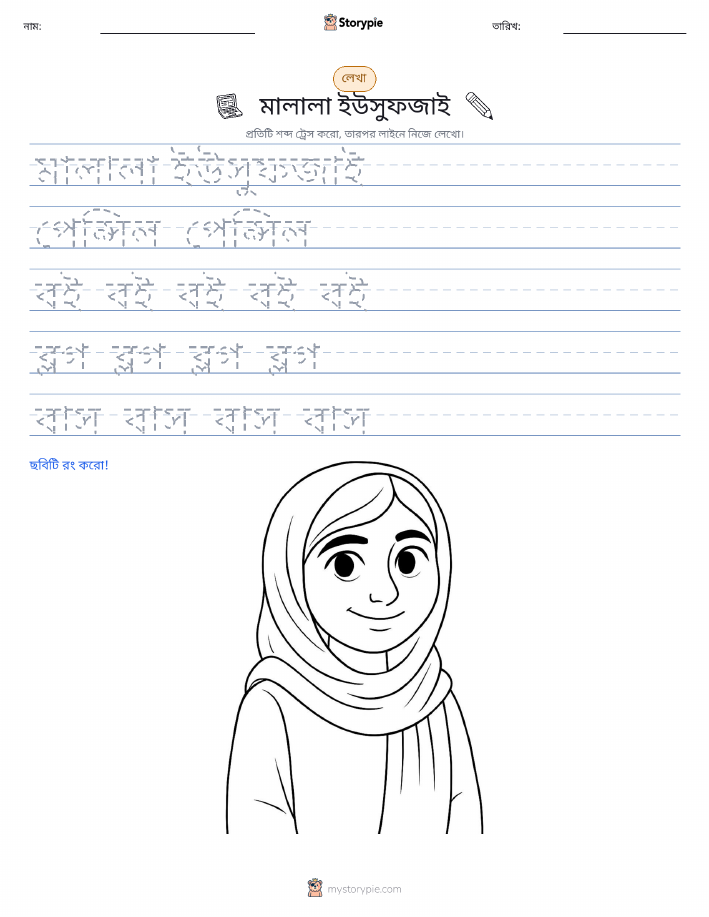 নাম:
Storypie
তারিখ:
লেখা
মালালা ইউসুফজাই
প্রতিটি শব্দ ট্রেস করো, তারপর লাইনে নিজে লেখো।
মালালা ইউসুফজাই
পেন্সিল পেন্সিল
বই বই বই বই বই
ব্লগ ব্লগ ব্লগ ব্লগ
বাস বাস বাস বাস
ছবিটি রং করো!
mystorypie.com